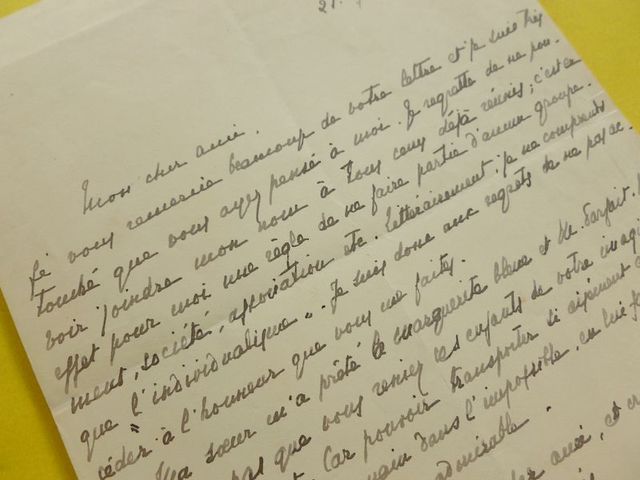 21.
Mon cher ami.
Je vous remercie beaucoup de votre lettre et je suis très
touché que vous ayez pensé à moi. Je regrette de ne pou-
voir joindre mon nom à tous ceux déjà réunis; c'est en
effet pour moi une règle de ne faire partie d'aucun groupe-
ment, société, association etc. littérairement: je ne comprends
que "l'individualisme". Je suis donc aux regrets de ne pas ac-
céder à l'honneur que vous me faites.
Ma sœur m'a prêté la marguerite bleue et Mr. Parfait.
pas que vous reniez les enfants de votre imagi
Car pouvoir transporter si aisément
main dans l'impossible, en lui
admirable.
cher ami, et